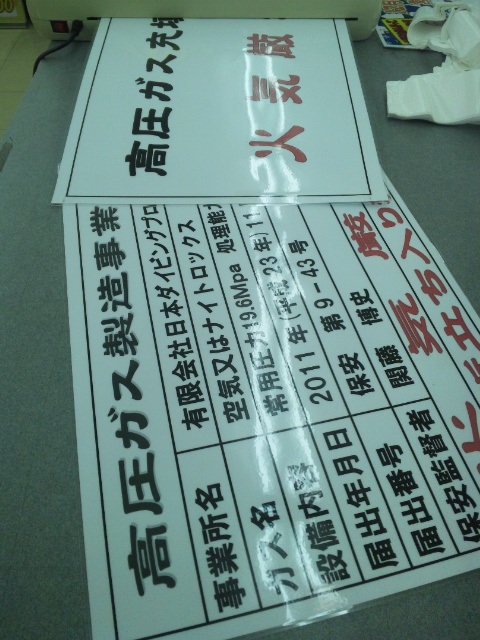 高圧ガス充填
火気厳
高圧ガス製造事業
事業所名 有限会社日本ダイビングプロ
ガス名 空気又はナイトロックス
設備内容 常用圧力19.6Mpa 処理能力
届出年月日 2011年(平成23年)11
届出番号 第9-43号
保安監督者 保安 関藤 博史
火気厳
立ち入り